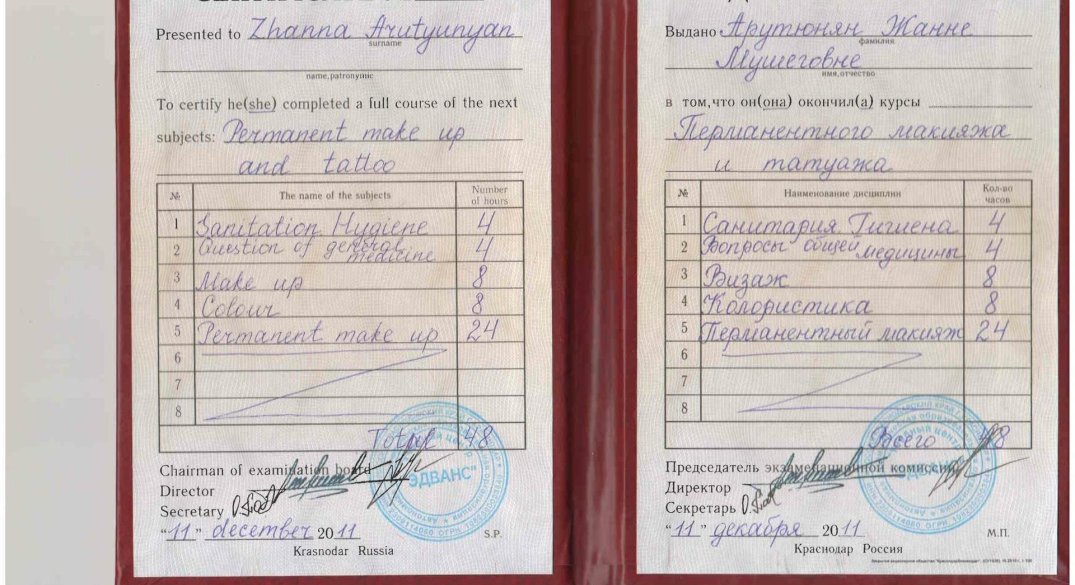 Presented to Zhanna Arutyunyan
surname
name, patronymic
To certify he(she) completed a full course of the next
subjects: Permanent make up
and tattoo
№ The name of the subjects Number of hours
1 Sanitation Hygiene 4
2 Question of general medicine 4
3 Make up 8
4 Colour 8
5 Permanent make up 24
6
7
8
Total 48
Chairman of examination board
Director
Secretary
"ЭДВАНС"
"11" december 2011 S.P.
Krasnodar Russia
Выдано Арутюнян Жанне
фамилия
Мушеговне
имя, отчество
в том, что он(она) окончил(а) курсы
Перманентного макияжа
и татуажа
№ Наименование дисциплин Кол-во часов
1 Санитария Гигиена 4
2 Вопросы общей медицины 4
3 Визаж 8
4 Колористика 8
5 Перманентный макияж 24
6
7
8
Всего 48
Председатель экзаменационной комиссии
Директор
Секретарь
"11" декабря 2011 М.П.
Краснодар Россия